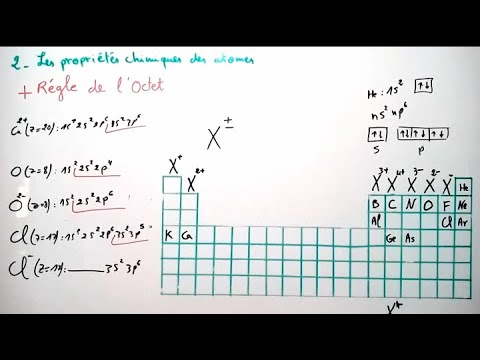 2- Les propriétés chimiques des atomes
+ Régle de l'Octet
Ca²⁺ (Z=20): 1s² 2s² 2p⁶ 3s² 3p⁶
O (Z=8): 1s² 2s² 2p⁴
O²⁻ (Z=8): 1s² 2s² 2p⁶
Cl (Z=17): 1s² 2s² 2p⁶ 3s² 3p⁵
Cl⁻ (Z=17): ——— 3s² 3p⁶
X±
He: 1s² ↑↓
ns² np⁶
↑↓ ↑↓ ↑↓ ↑↓
s p
X⁺
X²⁺
X³⁺ X⁴⁺ X³⁻ X²⁻ X⁻ He
B C N O F Ne
Al Cl Ar
K Ca Ge As